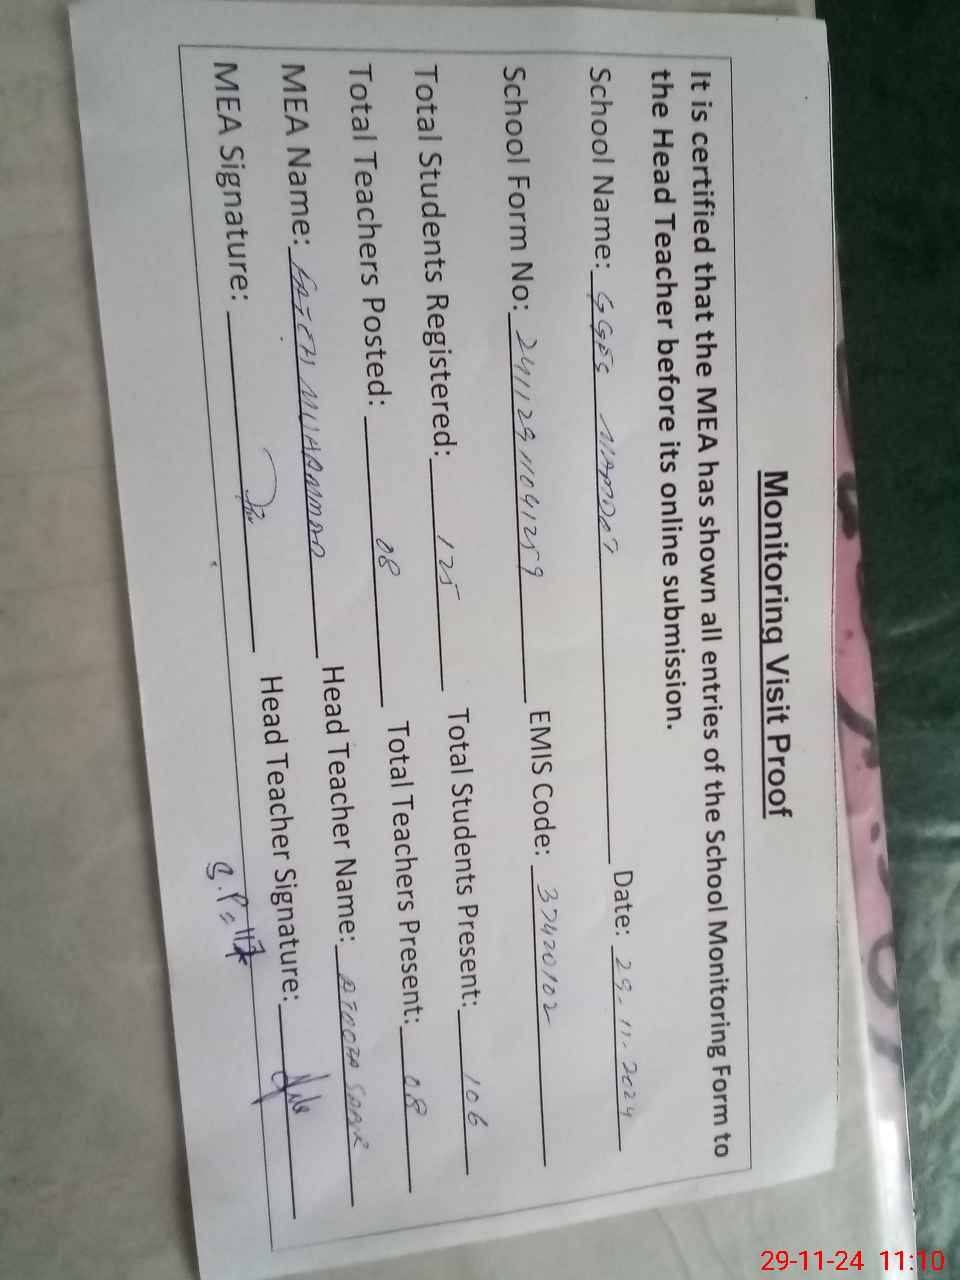 Monitoring Visit Proof
It is certified that the MEA has shown all entries of the School Monitoring Form to
the Head Teacher before its online submission.
School Name: GGES Date: 29-11-2024
School Form No: 24112911041259 EMIS Code: 37420102
Total Students Registered: 125 Total Students Present: 106
Total Teachers Posted: 08 Total Teachers Present: 08
MEA Name: MUHAMMAD Head Teacher Name:
MEA Signature: Head Teacher Signature:
29-11-24 11:10